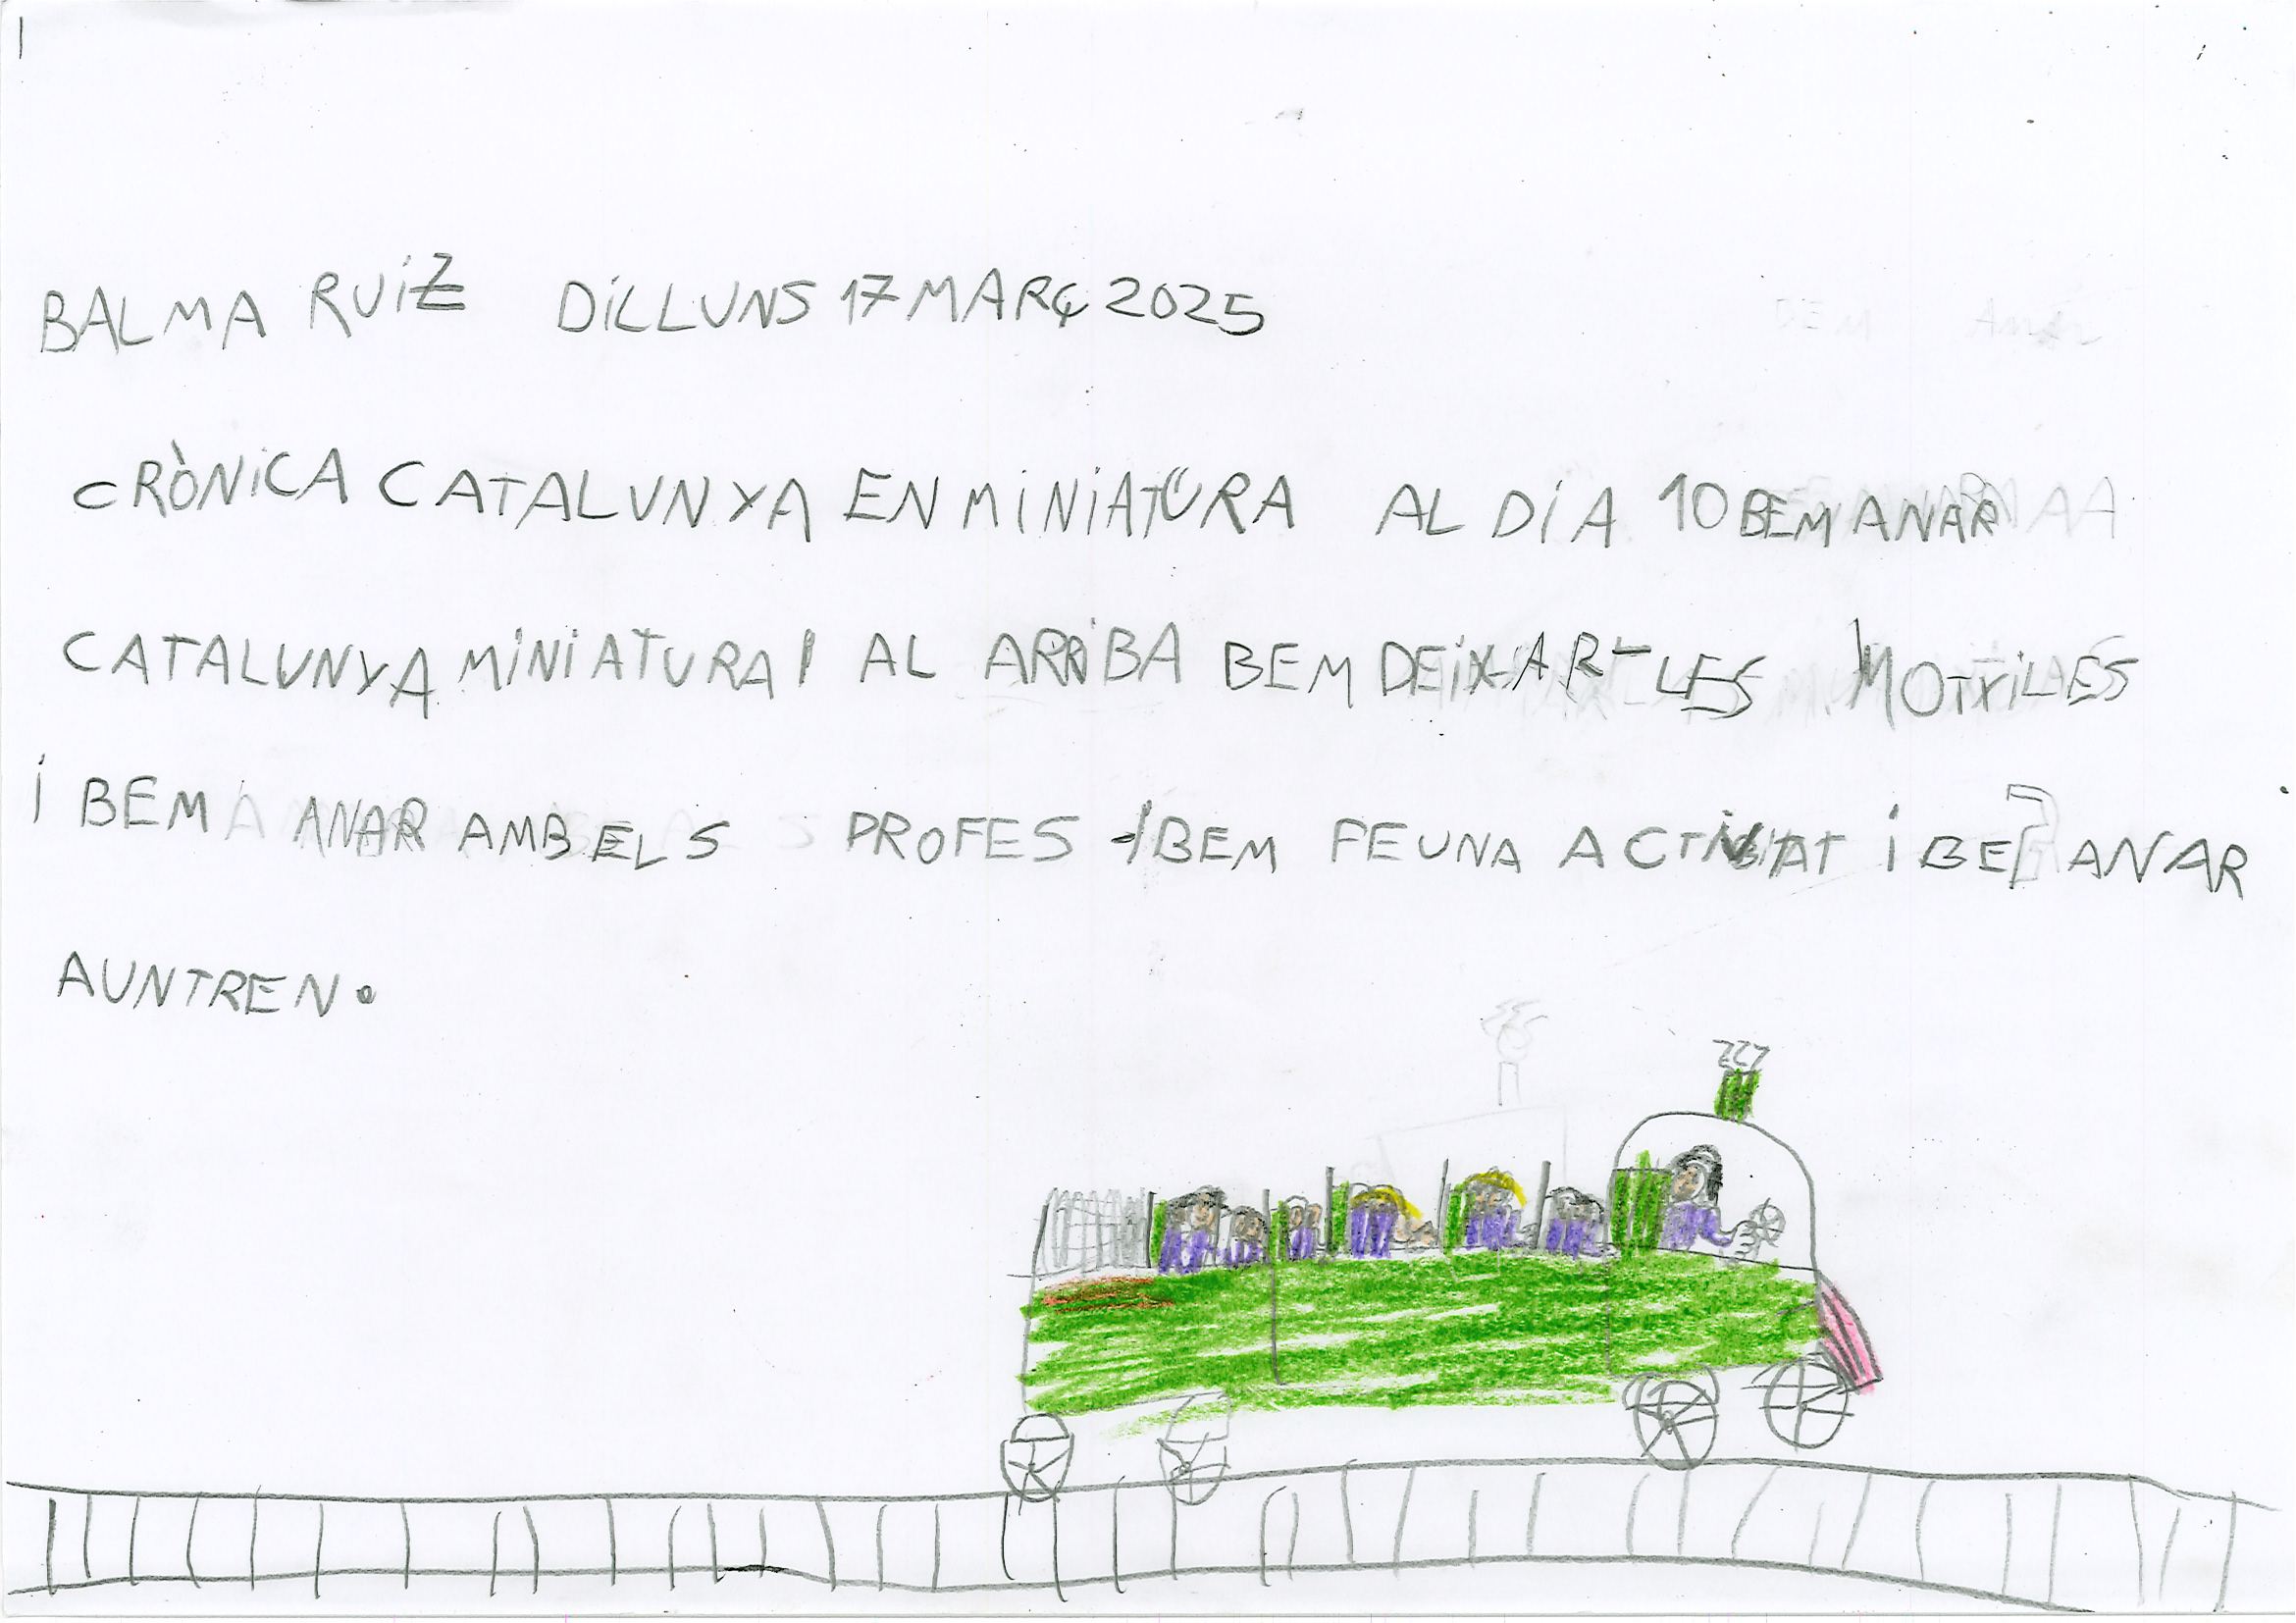 BALMA RUIZ DILLUNS 17 MARÇ 2025
CRÒNICA CATALUNYA EN MINIATURA AL DIA 10 BEM ANAR
CATALUNYA MINIATURA I AL ARRIBA BEM DEIXAR LES MOTXILES
I BEM ANAR AMB ELS PROFES I BEM FE UNA ACTIVITAT I BE ANAR
A UN TREN.